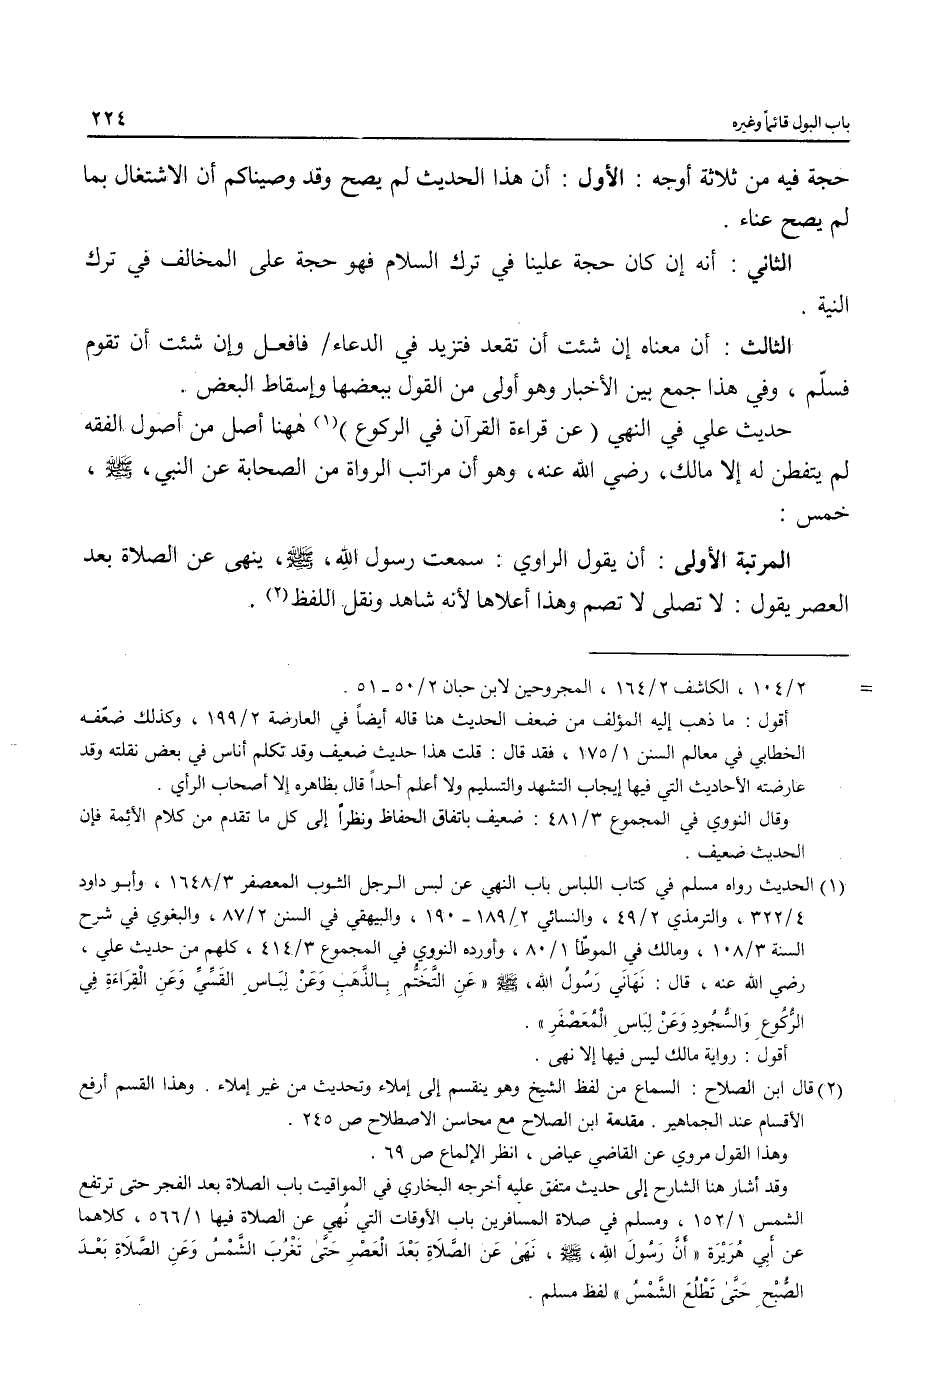 باب البول قائماً وغيره ٢٢٤
حجة فيه من ثلاثة أوجه : الأول : أن هذا الحديث لم يصح وقد وصيناكم أن الاشتغال بما
لم يصح عناء .
الثاني : أنه إن كان حجة علينا في ترك السلام فهو حجة على المخالف في ترك
النية .
الثالث : أن معناه إن شئت أن تقعد فتزيد في الدعاء/ فافعل وإن شئت أن تقوم
فسلّم ، وفي هذا جمع بين الأخبار وهو أولى من القول ببعضها وإسقاط البعض .
حديث علي في النهي ( عن قراءة القرآن في الركوع )(١) ههنا أصل من أصول الفقه
لم يتفطن له إلا مالك، رضي الله عنه، وهو أن مراتب الرواة من الصحابة عن النبي، ﷺ ،
خمس :
المرتبة الأولى : أن يقول الراوي : سمعت رسول الله، ﷺ، ينهى عن الصلاة بعد
العصر يقول : لا تصلى لا تصم وهذا أعلاها لأنه شاهد ونقل اللفظ(٢) .
= ١٠٤/٢ ، الكاشف ١٦٤/٢ ، المجروحين لابن حبان ٥٠/٢ ـ ٥١ .
أقول : ما ذهب إليه المؤلف من ضعف الحديث هنا قاله أيضاً في العارضة ١٩٩/٢ ، وكذلك ضعّفه
الخطابي في معالم السنن ١٧٥/١ ، فقد قال : قلت هذا حديث ضعيف وقد تكلم أناس في بعض نقلته وقد
عارضته الأحاديث التي فيها إيجاب التشهد والتسليم ولا أعلم أحداً قال بظاهره إلا أصحاب الرأي .
وقال النووي في المجموع ٤٨١/٣ : ضعيف باتفاق الحفاظ ونظراً إلى كل ما تقدم من كلام الأئمة فإن
الحديث ضعيف .
(١) الحديث رواه مسلم في كتاب اللباس باب النهي عن لبس الرجل الثوب المعصفر ١٦٤٨/٣ ، وأبو داود
٣٢٢/٤ ، والترمذي ٤٩/٢ ، والنسائي ١٨٩/٢ ـ ١٩٠ ، والبيهقي في السنن ٨٧/٢ ، والبغوي في شرح
السنة ١٠٨/٣ ، ومالك في الموطّأ ٨٠/١ ، وأورده النووي في المجموع ٤١٤/٣ ، كلهم من حديث علي ،
رضي الله عنه ، قال : نَهَانِي رَسُولُ الله، ﷺ « عَنِ التَّخَتُّمِ بِالذَّهَبِ وَعَنْ لِبَاسِ القَسِّيِّ وَعَنِ الْقِرَاءَةِ فِي
الرُّكُوعِ وَالسُّجُودِ وَعَنْ لِبَاسِ الْمُعَصْفَرِ » .
أقول : رواية مالك ليس فيها إلا نهى .
(٢) قال ابن الصلاح : السماع من لفظ الشيخ وهو ينقسم إلى إملاء وتحديث من غير إملاء . وهذا القسم أرفع
الأقسام عند الجماهير . مقدمة ابن الصلاح مع محاسن الاصطلاح ص ٢٤٥ .
وهذا القول مروي عن القاضي عياض ، انظر الإلماع ص ٦٩ .
وقد أشار هنا الشارح إلى حديث متفق عليه أخرجه البخاري في المواقيت باب الصلاة بعد الفجر حتى ترتفع
الشمس ١٥٢/١ ، ومسلم في صلاة المسافرين باب الأوقات التي نُهي عن الصلاة فيها ٥٦٦/١ ، كلاهما
عن أَبِي هُرَيْرَةَ « أَنَّ رَسُولَ اللهِ، ﷺ ، نَهَىٰ عَنِ الصَّلَاةِ بَعْدَ الْعَصْرِ حَتَّىٰ تَغْرُبَ الشَّمْسُ وَعَنِ الصَّلَاةِ بَعْدَ
الصُّبْحِ حَتَّىٰ تَطْلُعَ الشَّمْسُ » لفظ مسلم .